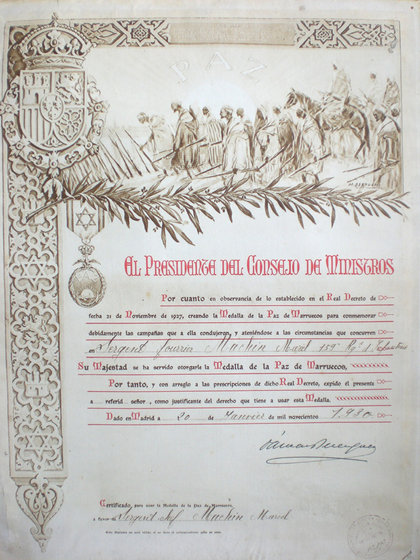 PAZ
EL PRESIDENTE DEL CONSEJO DE MINISTROS
Por cuanto en observancia de lo establecido en el Real Decreto de
fecha 21 de Noviembre de 1927, creando la Medalla de la Paz de Marruecos para conmemorar
debidamente las campañas que a ella condujeron, y ateniéndose a las circunstancias que concurren
en Sergent fourrier Machin Marel 159e
Su Majestad se ha servido otorgarle la Medalla de la Paz de Marruecos,
Por tanto, y con arreglo a las prescripciones de dicho Real Decreto, expido el presente
a referid señor, como justificante del derecho que tiene a usar esta Medalla.
Dado en Madrid a 20 de Janvier de mil novecientos 1.930
Certificado, para usar la Medalla de la Paz de Marruecos,
a favor del Sergent Machin Marel